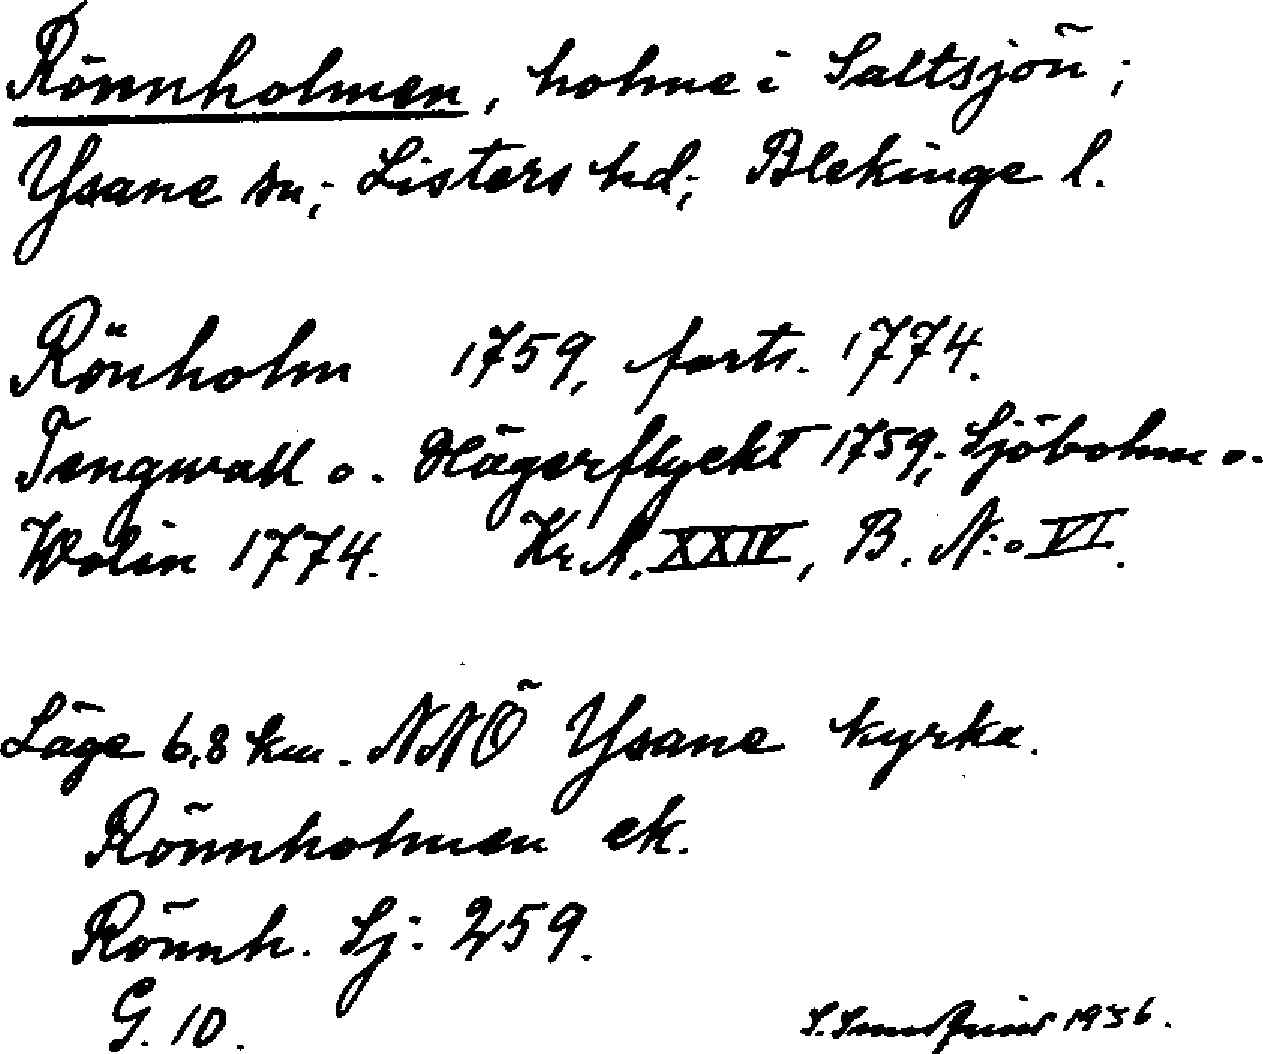 Rönnholmen, holme i Saltsjön;
Ysane sn; Listers hd; Blekinge l.
Rönholm 1759, forts. 1774.
Tengwall o. Hägerflyckt 1759; Sjöbohm o.
Wolin 1774. Kr. A. XXIV, B. N:o VI.
Läge 6,8 km. NNÖ Ysane kyrka.
Rönnholmen ek.
Rönnh. Sj: 259.
G. 10.
1936.